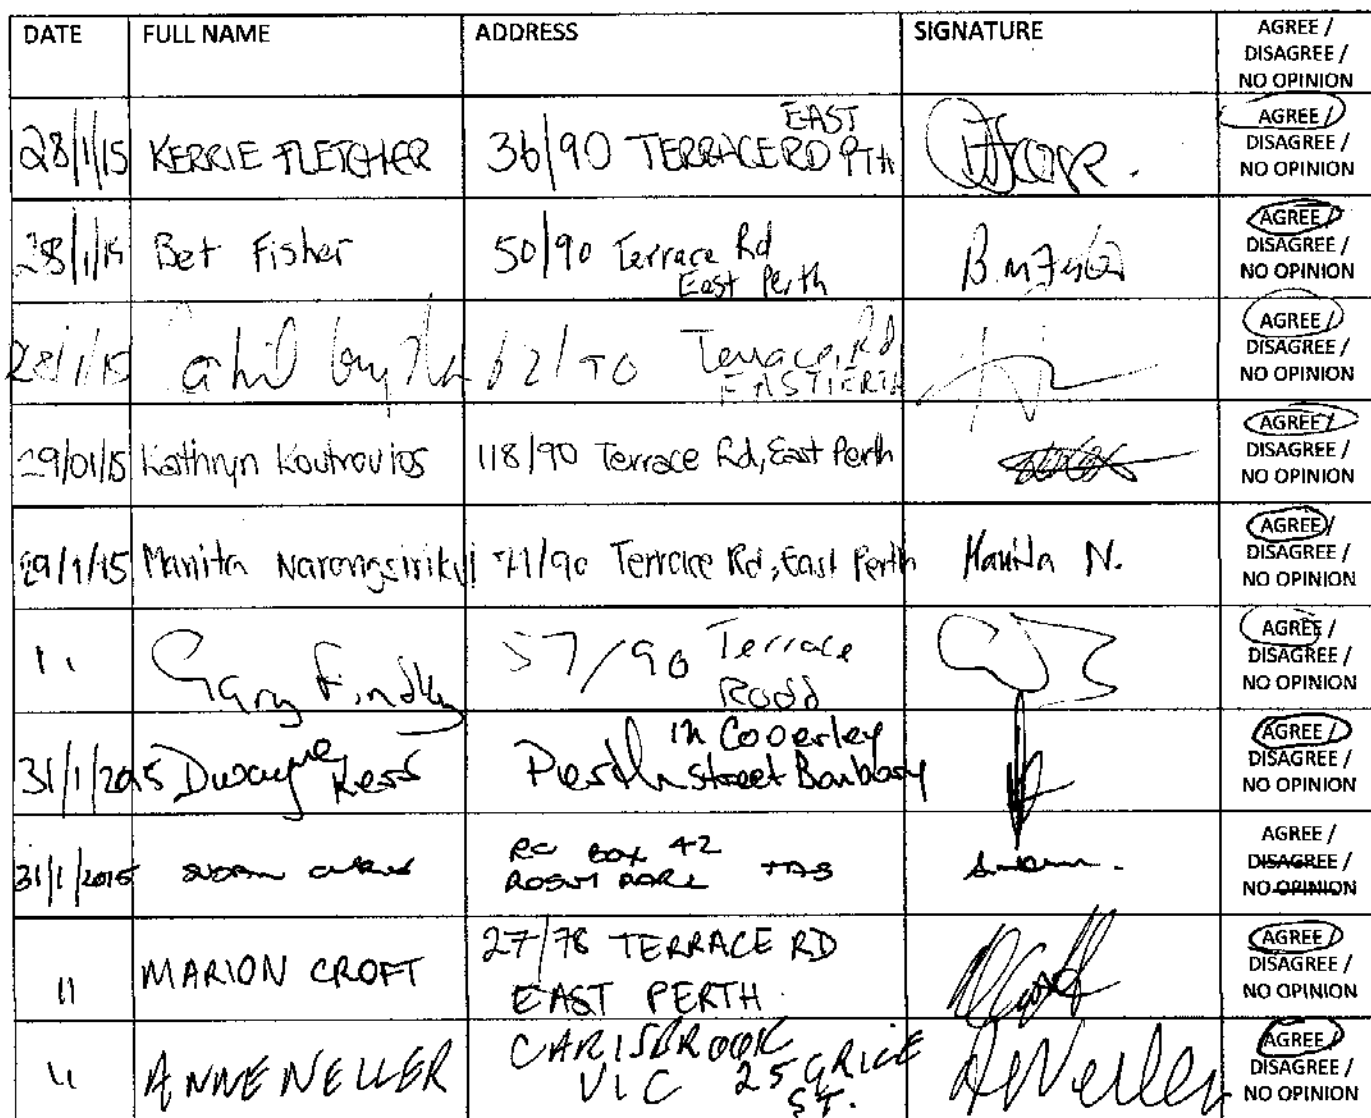 DATE FULL NAME ADDRESS SIGNATURE AGREE /
DISAGREE /
NO OPINION
28/1/15 KERRIE FLETCHER 36/90 TERRACE RD EAST PTH AGREE /
DISAGREE /
NO OPINION
28/1/15 Bet Fisher 50/90 Terrace Rd B.M Fisher AGREE /
East Perth DISAGREE /
NO OPINION
28/1/15 62/90 Terrace, Rd AGREE /
EAST PERTH DISAGREE /
NO OPINION
29/01/15 Kathryn Koutroulos 118/90 Terrace Rd, East Perth AGREE /
DISAGREE /
NO OPINION
29/1/15 Manita Narongsirikul 71/90 Terrace Rd, East Perth Manita N. AGREE /
DISAGREE /
NO OPINION
" Gary Findlay 57/90 Terrace AGREE /
Road DISAGREE /
NO OPINION
31/1/2015 Dwayne Perth 12 Cooerley AGREE /
Street Bunbury DISAGREE /
NO OPINION
31/1/2015 BOX 42 AGREE /
TAS DISAGREE /
NO OPINION
" MARION CROFT 27/78 TERRACE RD AGREE /
EAST PERTH DISAGREE /
NO OPINION
" ANNE NELLER CARISBROOK A Neller AGREE /
VIC 25 GRICE DISAGREE /
ST. NO OPINION